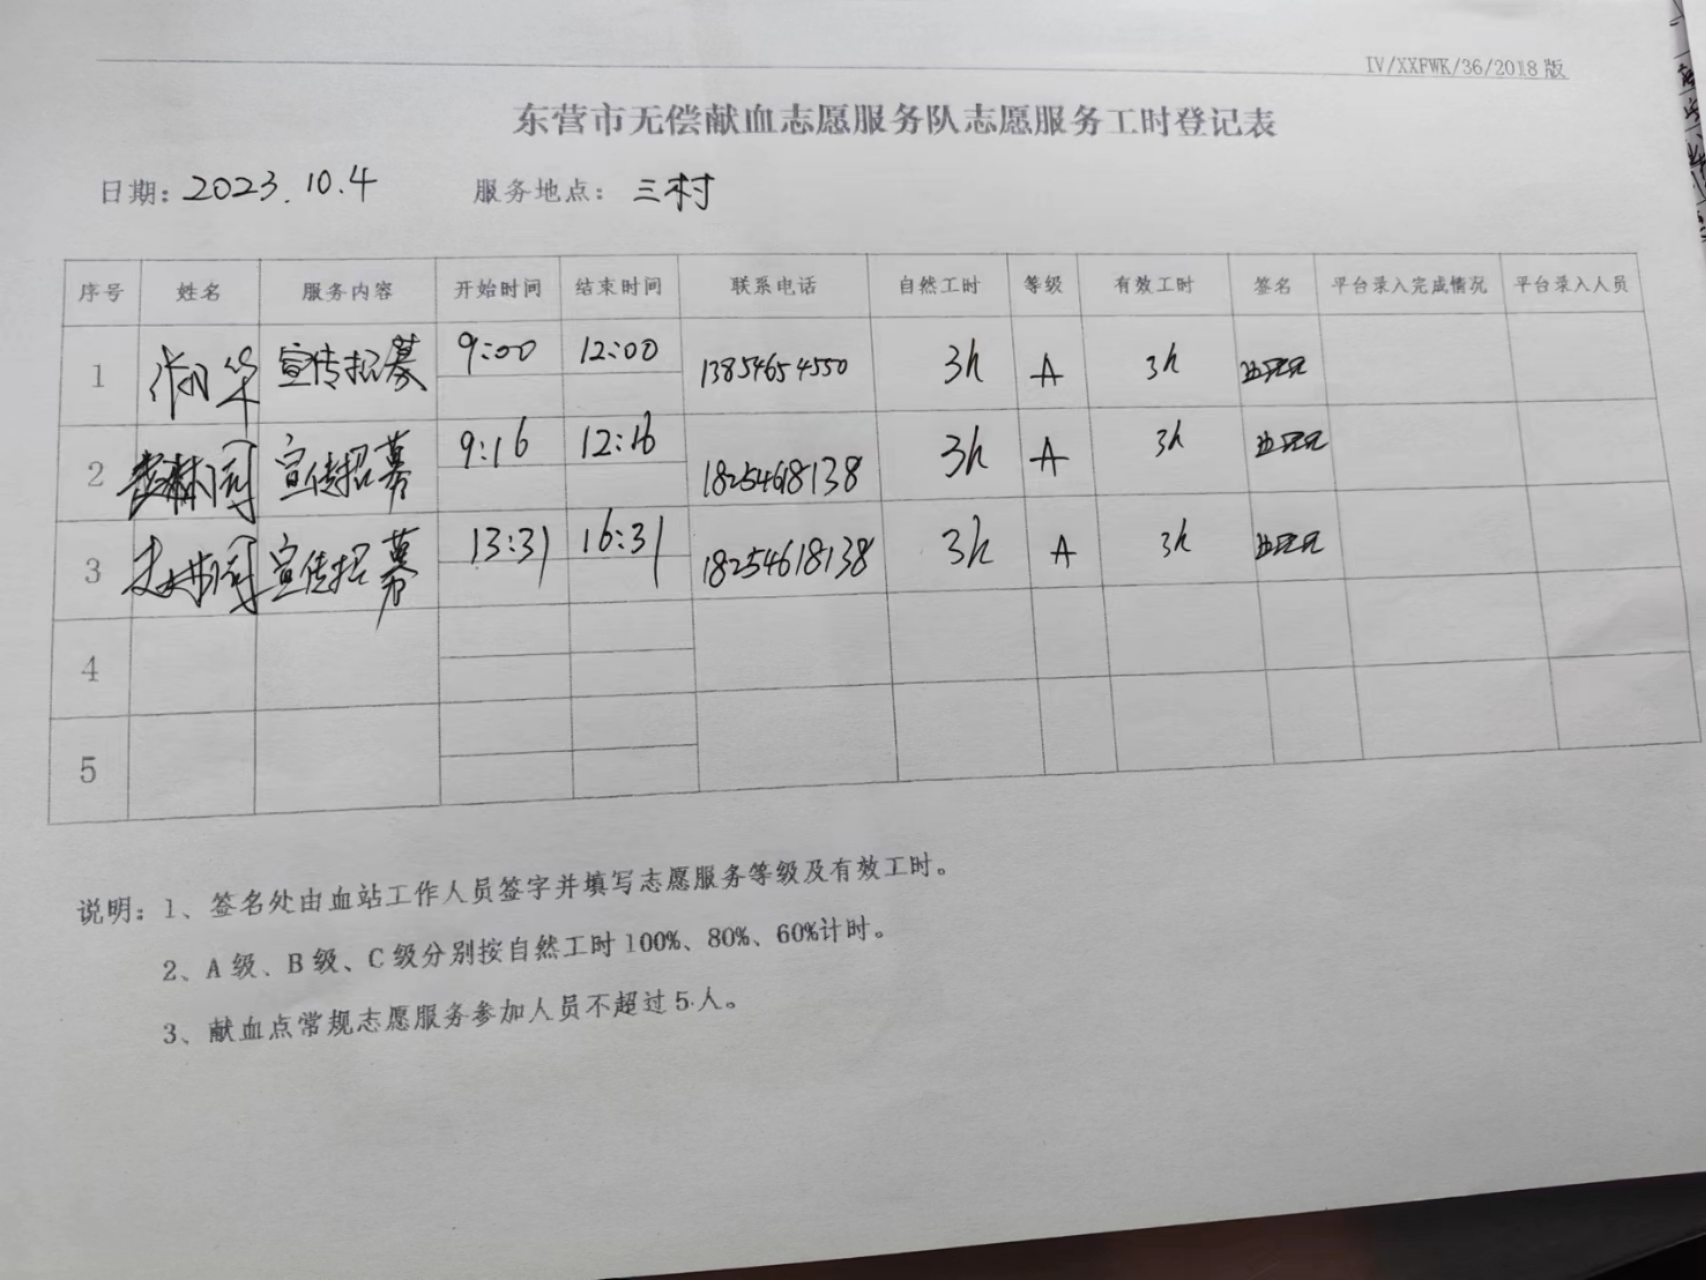 IV/XXFWK/36/2018版
东营市无偿献血志愿服务队志愿服务工时登记表
日期: 2023.10.4 服务地点: 三村
序号 姓名 服务内容 开始时间 结束时间 联系电话 自然工时 等级 有效工时 签名 平台录入完成情况 平台录入人员
1 宣传招募 9:00 12:00 13854654550 3h A 3h
2 宣传招募 9:16 12:16 18254618138 3h A 3h
3 宣传招募 13:31 16:31 18254618138 3h A 3h
4
5
说明: 1、签名处由血站工作人员签字并填写志愿服务等级及有效工时。
2、A级、B级、C级分别按自然工时100%、80%、60%计时。
3、献血点常规志愿服务参加人员不超过5人。